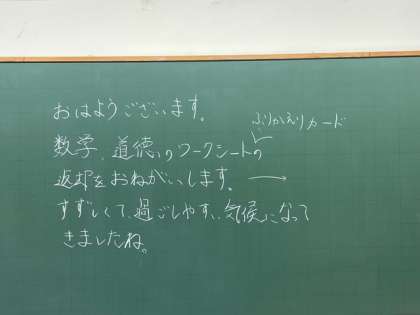 おはようございます。
ふりかえりカード
数学、道徳のワークシートの
返却をおねがいします。→
すずしくて、過ごしやすい気候になって
きましたね。